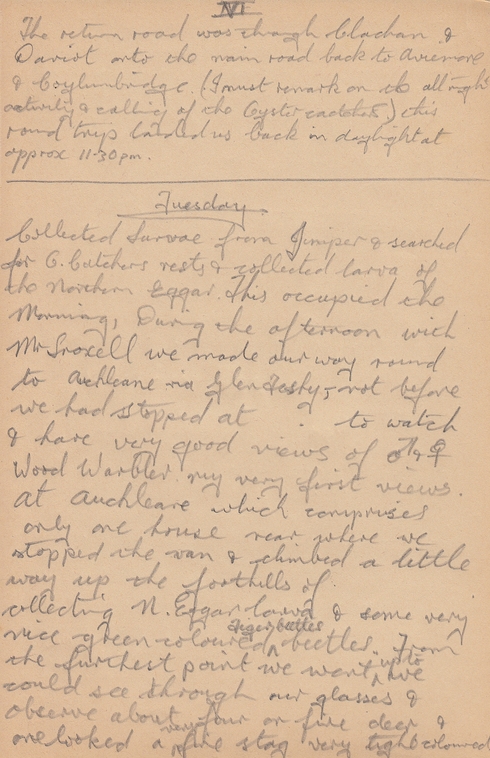 VI
The return road was through Clachan &
Daviot onto the main road back to Aviemore
& Coylumbridge. (I must remark on the all night
activity & calling of the Oystercatchers) this
round trip landed us back in daylight at
approx 11-30 pm.
Tuesday.
Collected larvae from Juniper & searched
for C. Catchers nests & collected larva of
the Northern Eggar. This occupied the
Morning, During the afternoon with
Mr we made our way round
to Auchleane via Glen Feshy, not before
we had stopped at to watch
& have very good views of ♂ & ♀
Wood Warbler my very first views.
At Auchleane which comprises
only one house near where we
stopped the van & climbed a little
way up the foothills of
collecting N. Eggar larva & some very
nice green coloured tiger beetles beetles. From
the furthest point we went up to we
could see through our glasses &
observe about four or five deer &
one looked a very fine stag very light coloured